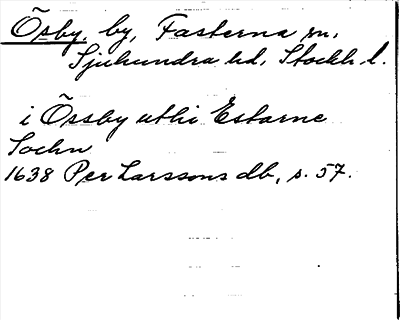 Ösby, by, Fasterna sn.
Sjuhundra hd, Stockh. l.
i Össby uthi Estarne
Sochn
1638 Per Larssons db, s. 57.